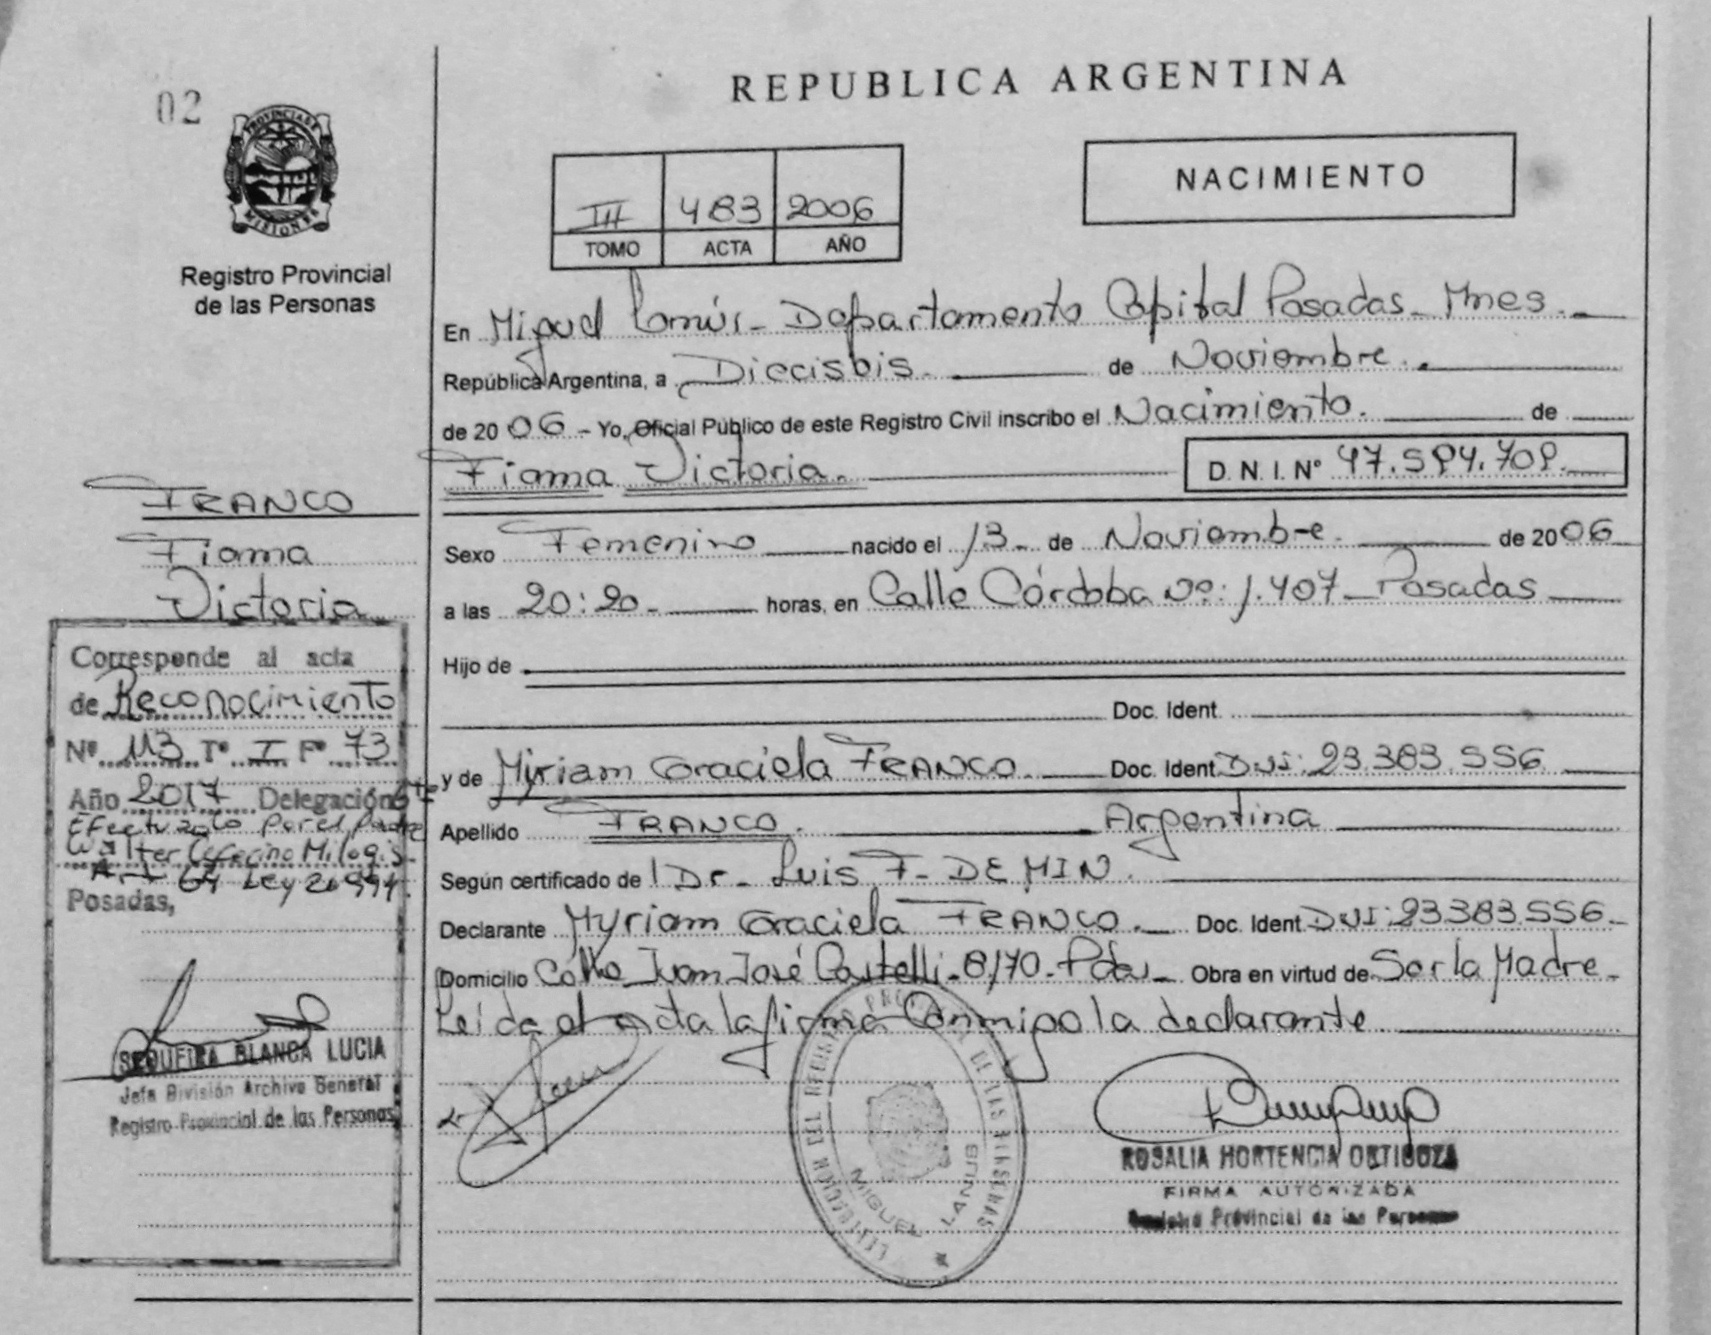 REPUBLICA ARGENTINA
02
PROVINCIA DE
MISIONES
Registro Provincial
de las Personas
III 483 2006
TOMO ACTA AÑO
NACIMIENTO
En Miguel Lanús - Departamento Capital Posadas - Mnes.
República Argentina, a Dieciseis. de Noviembre.
de 2006 - Yo, Oficial Público de este Registro Civil inscribo el Nacimiento. de
Fiama Victoria.
D. N. I. Nº 47.594.709.
FRANCO
Fiama
Victoria
Sexo Femenino nacido el 13 - de Noviembre. de 2006
a las 20:20 - horas, en Calle Córdoba Nº: 1.407 - Posadas
Hijo de
Doc. Ident.
y de Myriam Graciela FRANCO. Doc. Ident. DNI: 23.383.556
Apellido FRANCO. Argentina
Según certificado de Dr - Luis F - DE MIN.
Declarante Myriam Graciela FRANCO. Doc. Ident. DNI: 23383.556.
Domicilio Juan José Castelli - 8170 - Pdas - Obra en virtud de Ser la Madre -
Leida el acta la firma Conmigo la declarante
Corresponde al acta
de Reconocimiento
Nº 113 Tº I Fº 73
Año 2017 Delegación
Efectuado Por el Padre
Walter Ceferino
Art 64 Ley 26994.
Posadas,
SEQUEIRA BLANCA LUCIA
Jefa División Archivo General
Registro Provincial de las Personas
DEL REGISTRO PROVINCIAL DE LAS PERSONAS
MIGUEL LANUS
ROSALIA HORTENCIA ORTIGOZA
FIRMA AUTORIZADA
Registro Provincial de las Personas